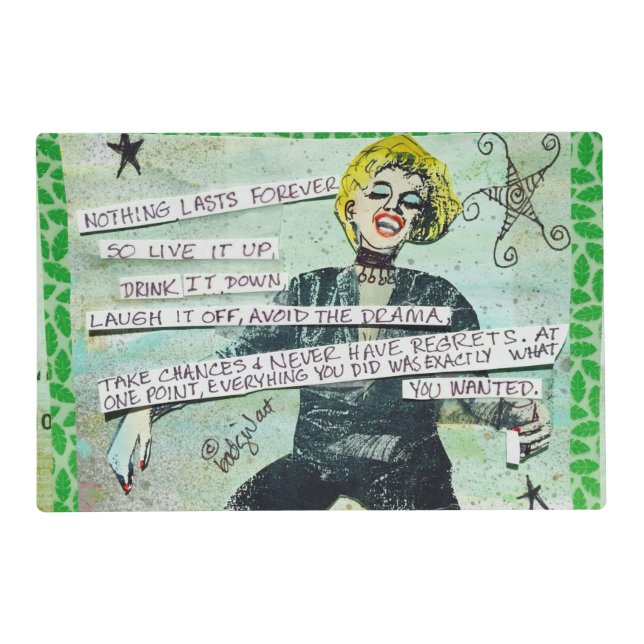 NOTHING LASTS FOREVER
SO LIVE IT UP,
DRINK IT DOWN
LAUGH IT OFF, AVOID THE DRAMA,
TAKE CHANCES & NEVER HAVE REGRETS. AT
ONE POINT, EVERYHING YOU DID WAS EXACTLY WHAT
YOU WANTED.
©